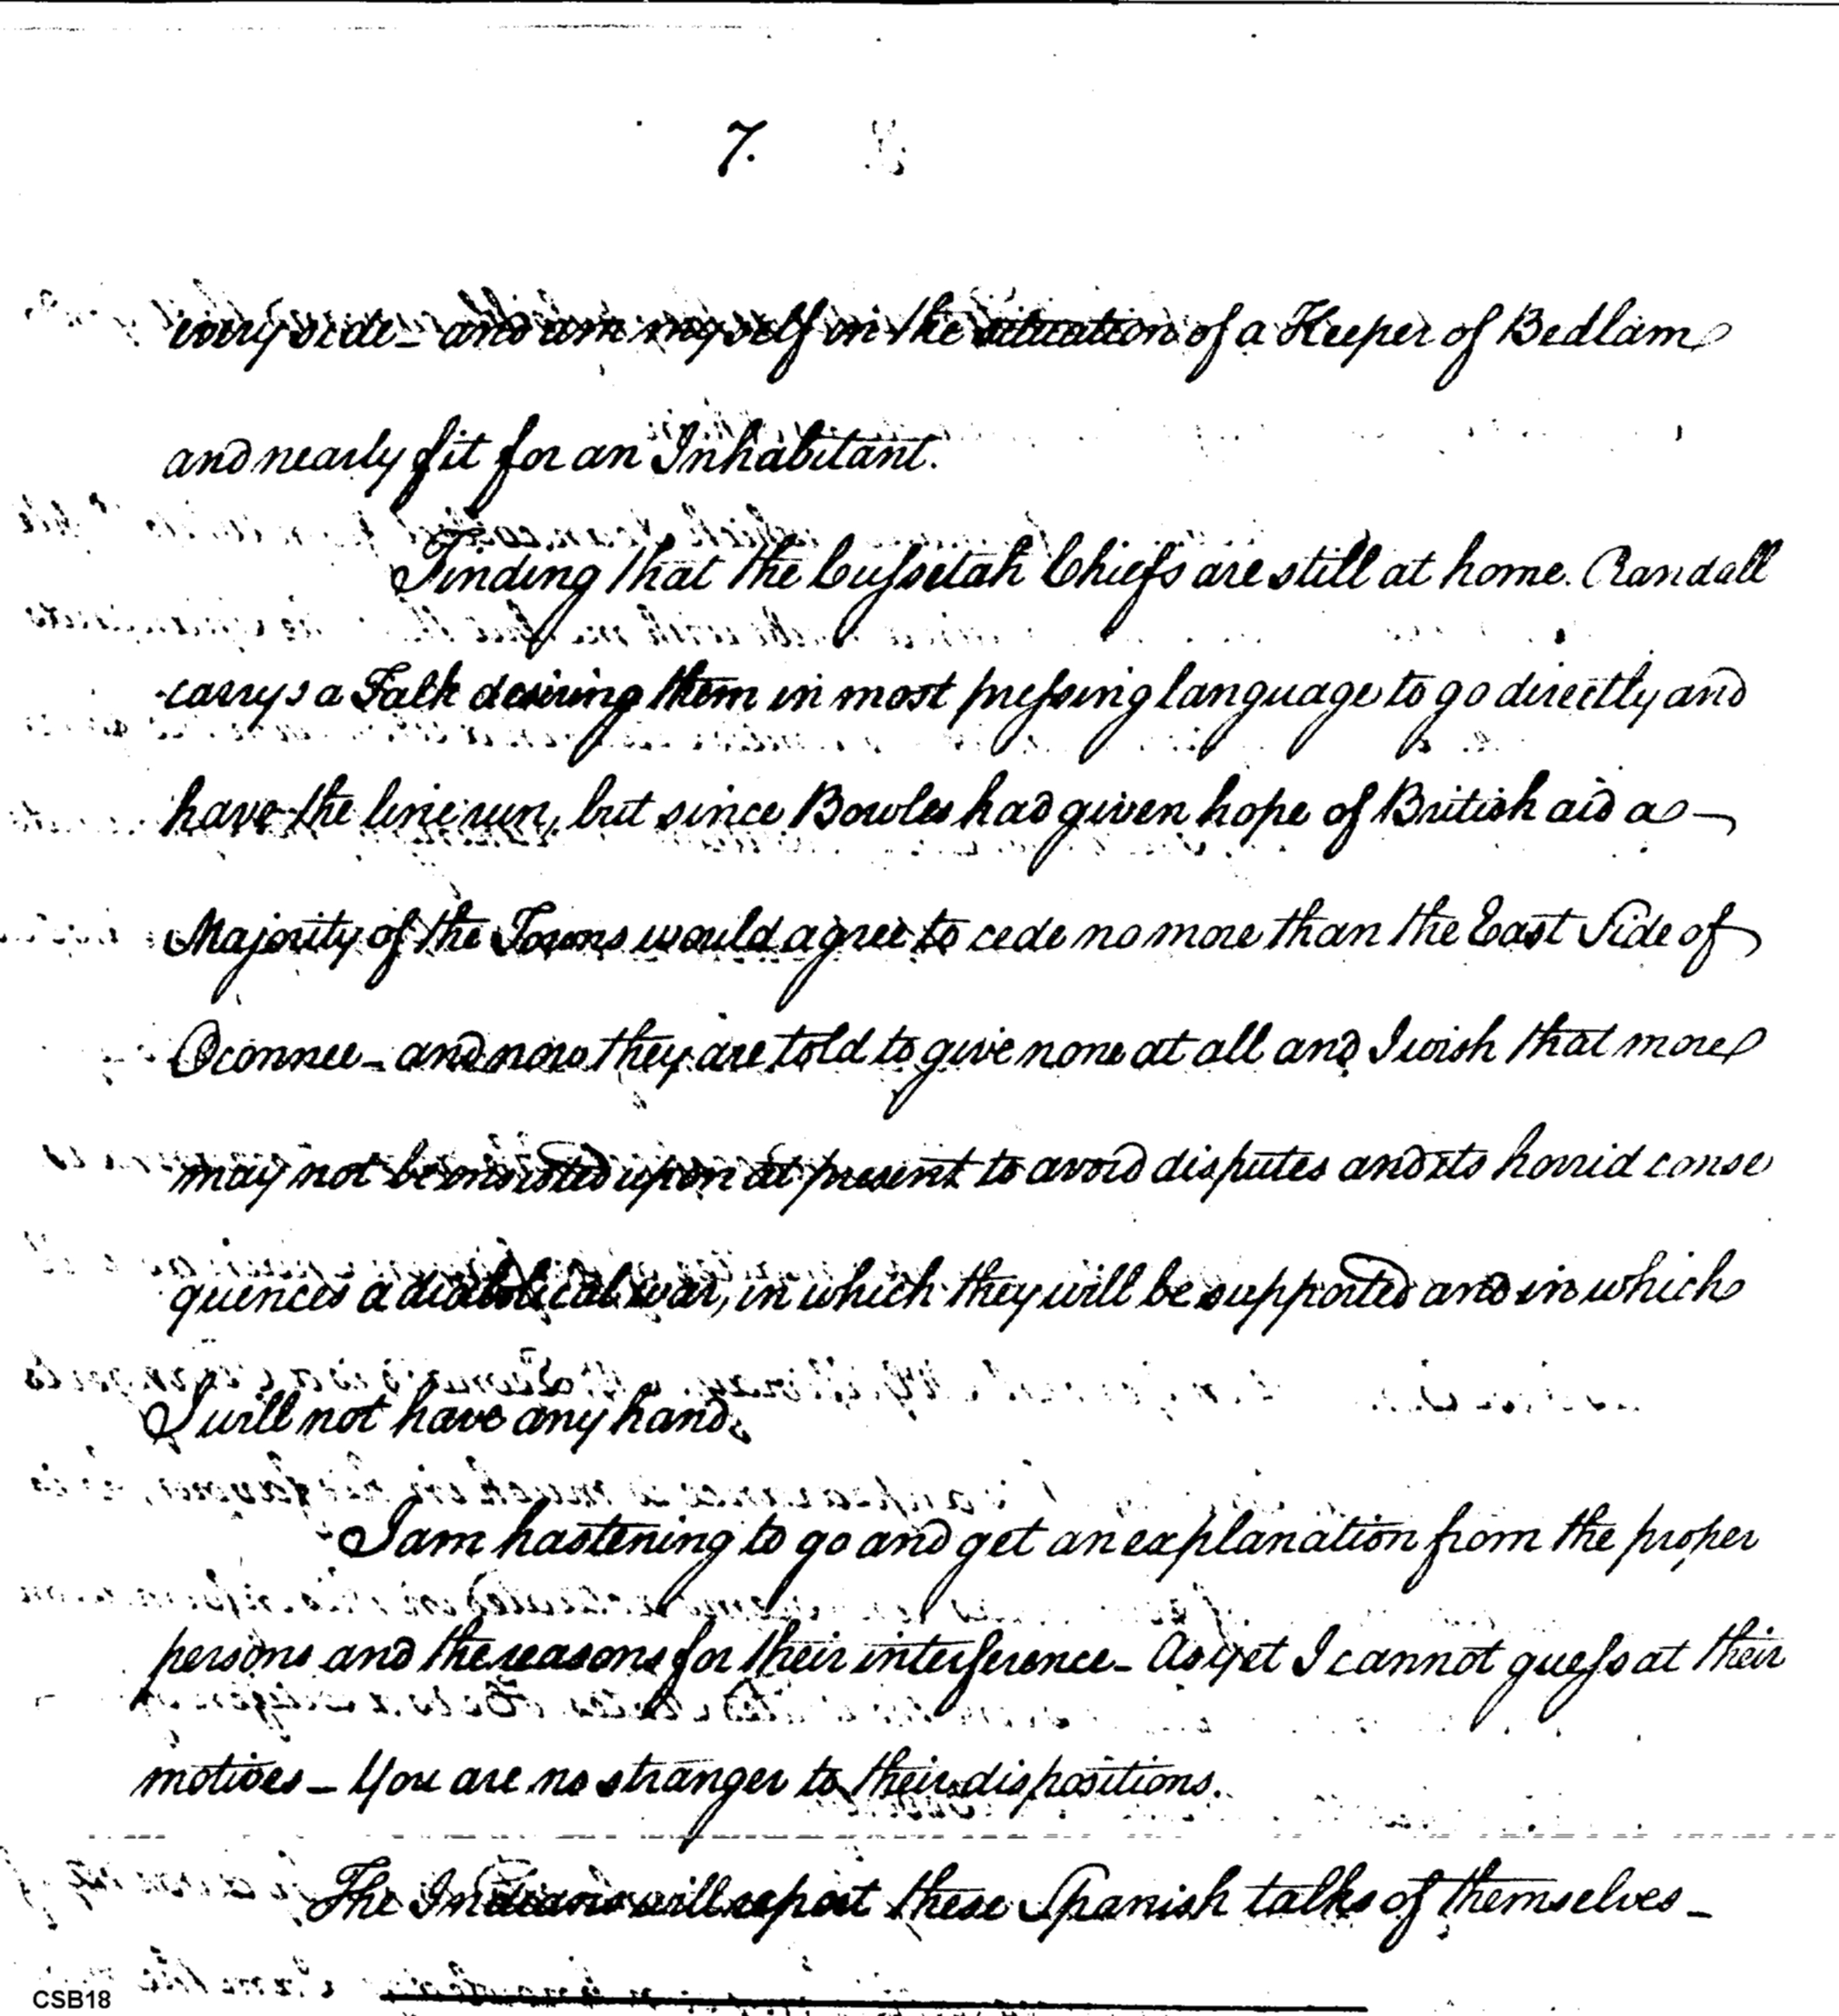 7.
every side – and am myself in the situation of a Keeper of Bedlam
and nearly fit for an Inhabitant.
Finding that the Cussetah Chiefs are still at home. Randall
carrys a Talk desiring them in most pressing language to go directly and
have the line run, but since Bowles had given hope of British aid a
Majority of the Towns would agree to cede no more than the East Side of
Oconnee – and now they are told to give none at all and I wish that more
may not be insisted upon at present to avoid disputes and its horrid conse
quences a diabolical war, in which they will be supported and in which
I will not have any hand.
I am hastening to go and get an explanation from the proper
persons and the reasons for their interference – As yet I cannot guess at their
motives – You are no stranger to their dispositions.
The Indians will report these Spanish talks of themselves –
CSB18